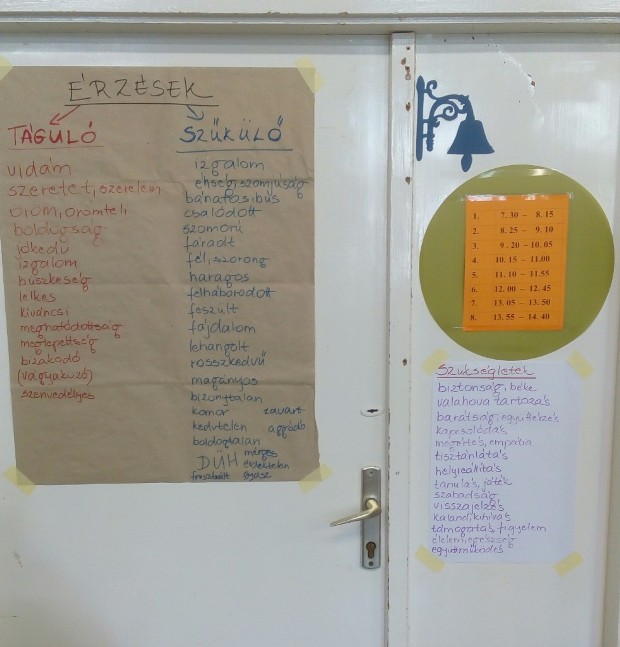 ÉRZÉSEK
TÁGULÓ
vidám
szeretet, szerelem
öröm, örömteli
boldogság
jókedű
izgalom
büszkeség
lelkes
kíváncsi
meghatódottság
meglepettség
bizakodó
(vágyakozó)
szenvedélyes
SZŰKÜLŐ
izgalom
éhség, szomjúság
bánatos, bús
csalódott
szomorú
fáradt
fél, szorong
haragos
felháborodott
feszült
fájdalom
lehangolt
rosszkedvű
magányos
bizonytalan
komor zavart
kedvtelen aggódó
boldogtalan
DÜH mérges
érdektelen
frusztrált gyász
1. 7.30 – 8.15
2. 8.25 – 9.10
3. 9.20 – 10.05
4. 10.15 – 11.00
5. 11.10 – 11.55
6. 12.00 – 12.45
7. 13.05 – 13.50
8. 13.55 – 14.40
Szükségletek
biztonság, béke
valahova tartozás
barátság, együttérzés
kapcsolódás
megértés, empátia
tisztánlátás
helyreállítás
tanulás, játék
szabadság
visszajelzés
kaland, kihívás
támogatás, figyelem
élelem, egészség
együttműködés